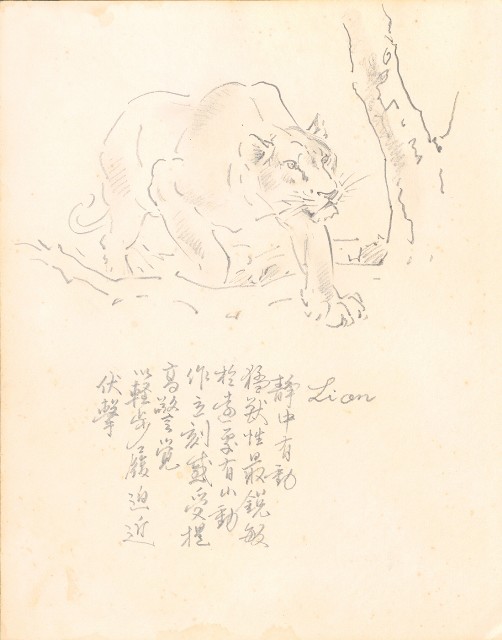 Lion
静中有動
猛獣性最鋭敏
於遠處有小動
作立刻感受提
高警覚
以軽步履迫近
伏擊